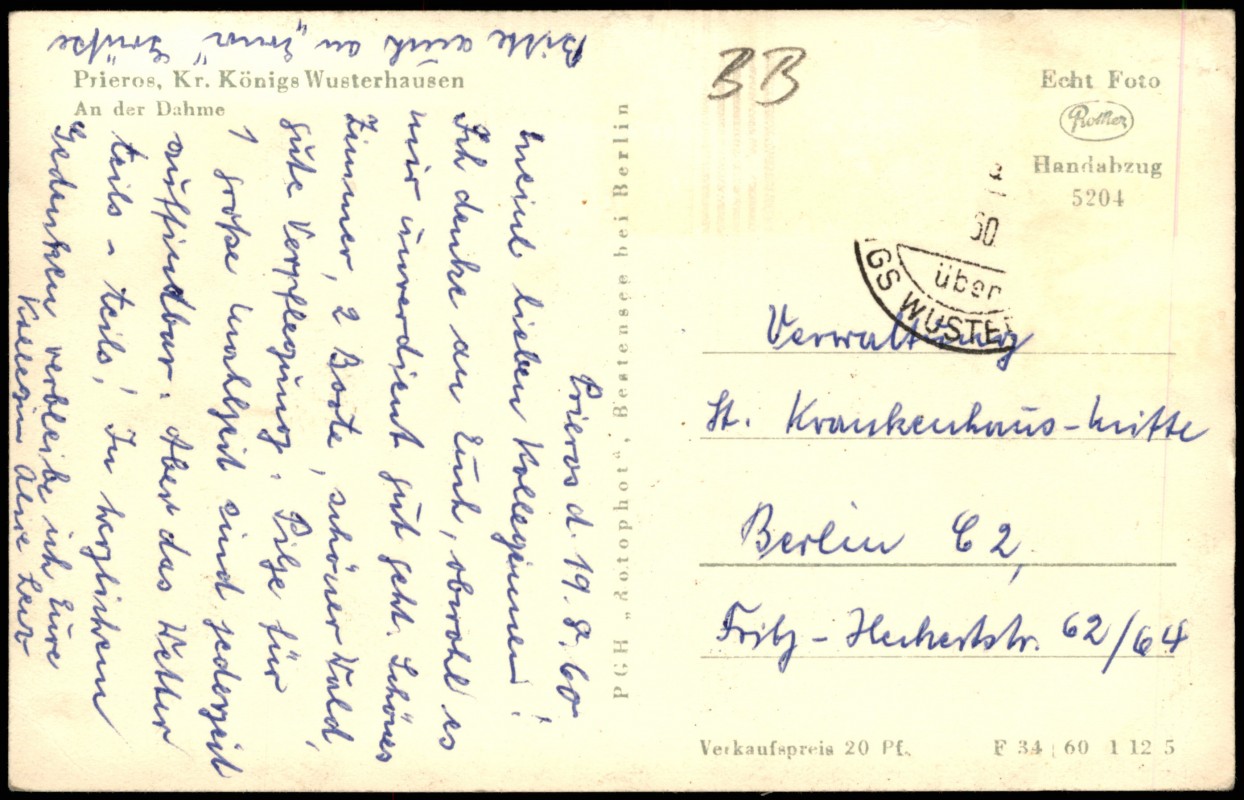 Prieros, Kr. Königs Wusterhausen
An der Dahme
Bitte auch an „Irma" Grüße
Prieros d. 19.8.60
Meine lieben Kolleginnen!
Ich denke an Euch, obwohl es
mir unverdient gut geht. Schönes
Zimmer, 2 Boote, schöner Wald,
gute Verpflegung. Pilze für
1 große Mahlzeit sind jederzeit
auffindbar. Aber das Wetter
teils - teils! In herzlichem
Gedenken verbleibe ich Eure
Kollegin
PGH „Rotophot", Bestensee bei Berlin
BB
Echt Foto
Handabzug
5204
60
über
GS WUSTE
Verwaltung
St. Krankenhaus-Mitte
Berlin C 2,
Fritz-Heckertstr. 62/64
Verkaufspreis 20 Pf.
F 34 60 1 12 5